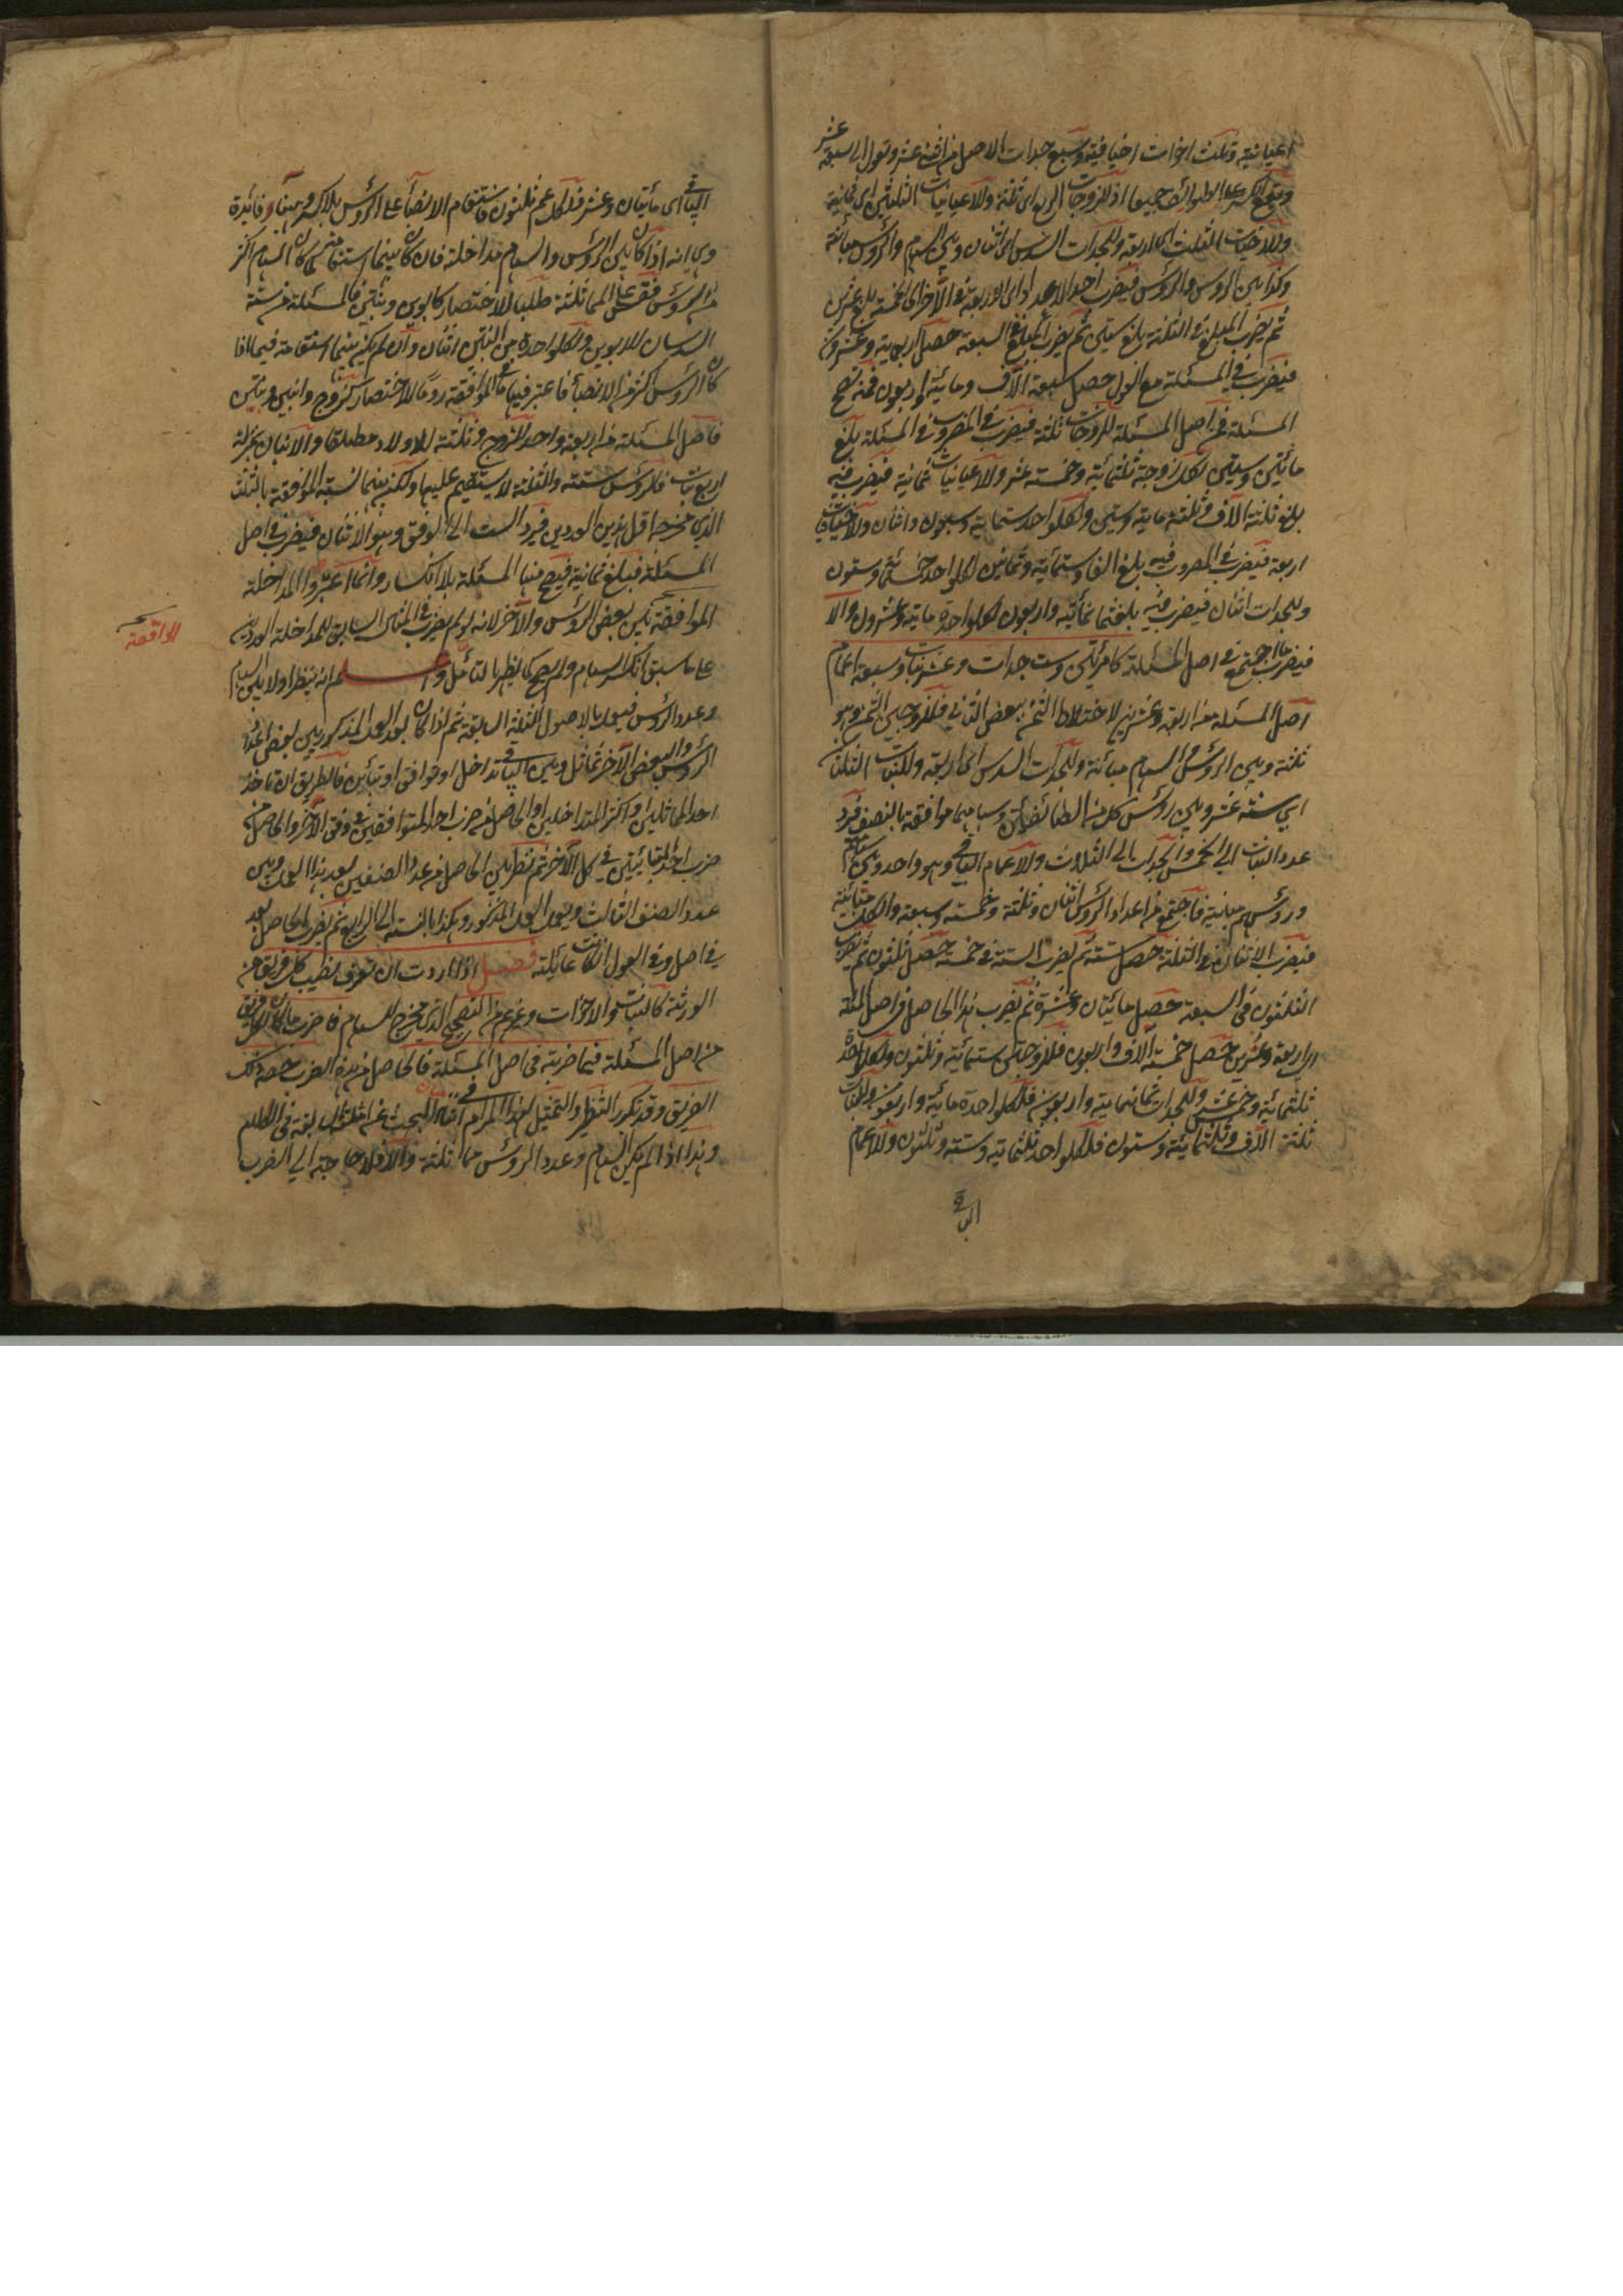 اعيانية وثلث اخوات اخيافية وسبع جدات الاصل من اثنى عشر وتعول الى سبعة عشر
ووقع الكسر على الطوائف جميعا اذ للزوجات الربع اى ثلثة وللاعيانيات الثلثين اى ثمانية
وللاخيافيات الثلث اى اربعة وللجدات السدس اى اثنان وبين السهام والرؤس مباينة
وكذا بين الرؤس والرؤس فيضرب احد الاعداد اى الاربعة فى الآخر اى الخمسة بلغ عشرين
ثم يضرب المبلغ فى الثلثة بلغ ستين ثم يضرب المبلغ فى السبعة حصل اربعمائة وعشرون
فيضرب فى المسئلة مع العول حصل سبعة آلاف ومائة واربعون فمنه تصح
المسئلة فمن اصل المسئلة للزوجات ثلثة فيضرب فى المضروب فى المسئلة بلغ
مائتين وستين لكل زوجة ثلثمائة وخمسة عشر وللاعيانيات ثمانية فيضرب فيه
بلغ ثلثة آلاف وثلثة مائة وستين ولكل واحد ستمائة وسبعون واثنان وللاخيافيات
اربعة فيضرب فى المضروب فيه بلغ الفا وستمائة وثمانين لكل واحد خمسمائة وستون
وللجدات اثنان فيضرب فيه بلغ ثمانمائة واربعون لكل واحدة مائة وعشرون والا
فيضرب ما اجتمع فى اصل المسئلة كامرأتين وست جدات وعشر بنات وسبعة اعمام
اصل المسئلة من اربعة وعشرين لاختلاط الثمن ببعض الثانى فللزوجتين الثمن وهو
ثلثة وبين الرؤس والسهام مباينة وللجدات السدس اى اربعة وللبنات الثلثان
اى ستة عشر وبين رؤس كل من الطائفتين وسهامهما موافقة بالنصف فيرد
عدد البنات الى الخمس والجدات الى الثلاث وللاعمام الباقى وهو واحد وبين سهامهم
ورؤسهم مباينة فاجتمع من اعداد الرؤس اثنان وثلثة وخمسة وسبعة والكل متباينة
فيضرب الاثنان فى الثلثة حصل ستة ثم يضرب الستة فى خمسة حصل ثلثون ثم يضرب
الثلثون فى السبعة حصل مائتان وعشرة ثم يضرب هذا الحاصل فى اصل المسئلة
اى اربعة وعشرين حصل خمسة آلاف واربعون فللزوجتين ستمائة وثلثون ولكل واحدة
ثلثمائة وخمس عشر وللجدات ثمانمائة واربعون فلكل واحدة مائة واربعون وللبنات
ثلثة آلاف وثلثمائة وستون فلكل واحد ثلثمائة وستة وثلثون وللاعمام
الباقى
الباقى اى مائتان وعشر فلكل عم ثلثون فاستقام الانصباء على الرؤس بلا كسر وههنا فائدة
وهى انه اذا كان بين الرؤس والسهام مداخلة فان كان بينهما استقامة بان كان السهام اكثر
من الرؤس فقس على المماثلة طلبا للاختصار كابوين وبنتين فالمسئلة من ستة
السدسان للابوين ولكل واحدة من البنتين اثنان وان لم يكن بينهما استقامة فيما اذا
كان الرؤس اكثر من الانصباء فاعتبر فيها الموافقة روما للاختصار كزوج وابنين وبنتين
فاصل المسئلة من اربعة واحد للزوج وثلثة للاولاد مطلقا والابنان بمنزلة
اربع بنات فالرؤس ستة والثلثة لا يستقيم عليها ولكن بينهما نسبة الموافقة بالثلث
الذى مخرجه اقل هذين العددين فيرد الست الى الوفق وهو الاثنان فيضرب فى اصل
المسئلة فيبلغ ثمانية فيصح منها المسئلة بلا انكسار وانما اعتبروا المداخلة
الموافقة بين بعض الرؤس والآخر لانه لو لم يضرب فى المثال السابق للمداخلة العددين
على ما سبق انكسر السهام ولم يصح كما يظهر بالتأمل واعلم انه ينظر اولا بين السهام
وعدد الرؤس فيعمل بالاصول الثلثة السابقة ثم اذا كان بعد العمل المذكور بين بعض اعداد
الرؤس والبعض الآخر تماثل وبين الباقى تداخل او توافق او تباين فالطريق ان تاخذ
احد المماثلين او اكثر المتداخلين او الحاصل من ضرب احد المتوافقين فى وفق الآخر والحاصل من
ضرب احد المتباينين فى كل الآخر ثم تنظر بين الحاصل من عدد الصنفين بعد هذا العمل وبين
عدد الصنف الثالث ويعمل العمل المذكور وهكذا بالنسبة الى الرابع ثم يضرب الحاصل بعد
فى اصل وفى العول ان كانت عائلة فصل اذا اردت ان تعرف نصيب كل فريق من
الورثة كالبنات والاخوات وغيرهم من التصحيح الذى مخرج السهام فاضرب ما كان لكل فريق
من اصل المسئلة فيما ضربته فى اصل المسئلة فالحاصل من هذا الضرب حصة ذلك
الفريق وقد تكرر التنظير والتمثيل لهذا المرام فى اثناء البحث عن امثلة سابقة فى الكلام
وهذا اذا لم يكن السهام وعدد الرؤس مماثلة والا فلا حاجة الى الضرب
الموافقة